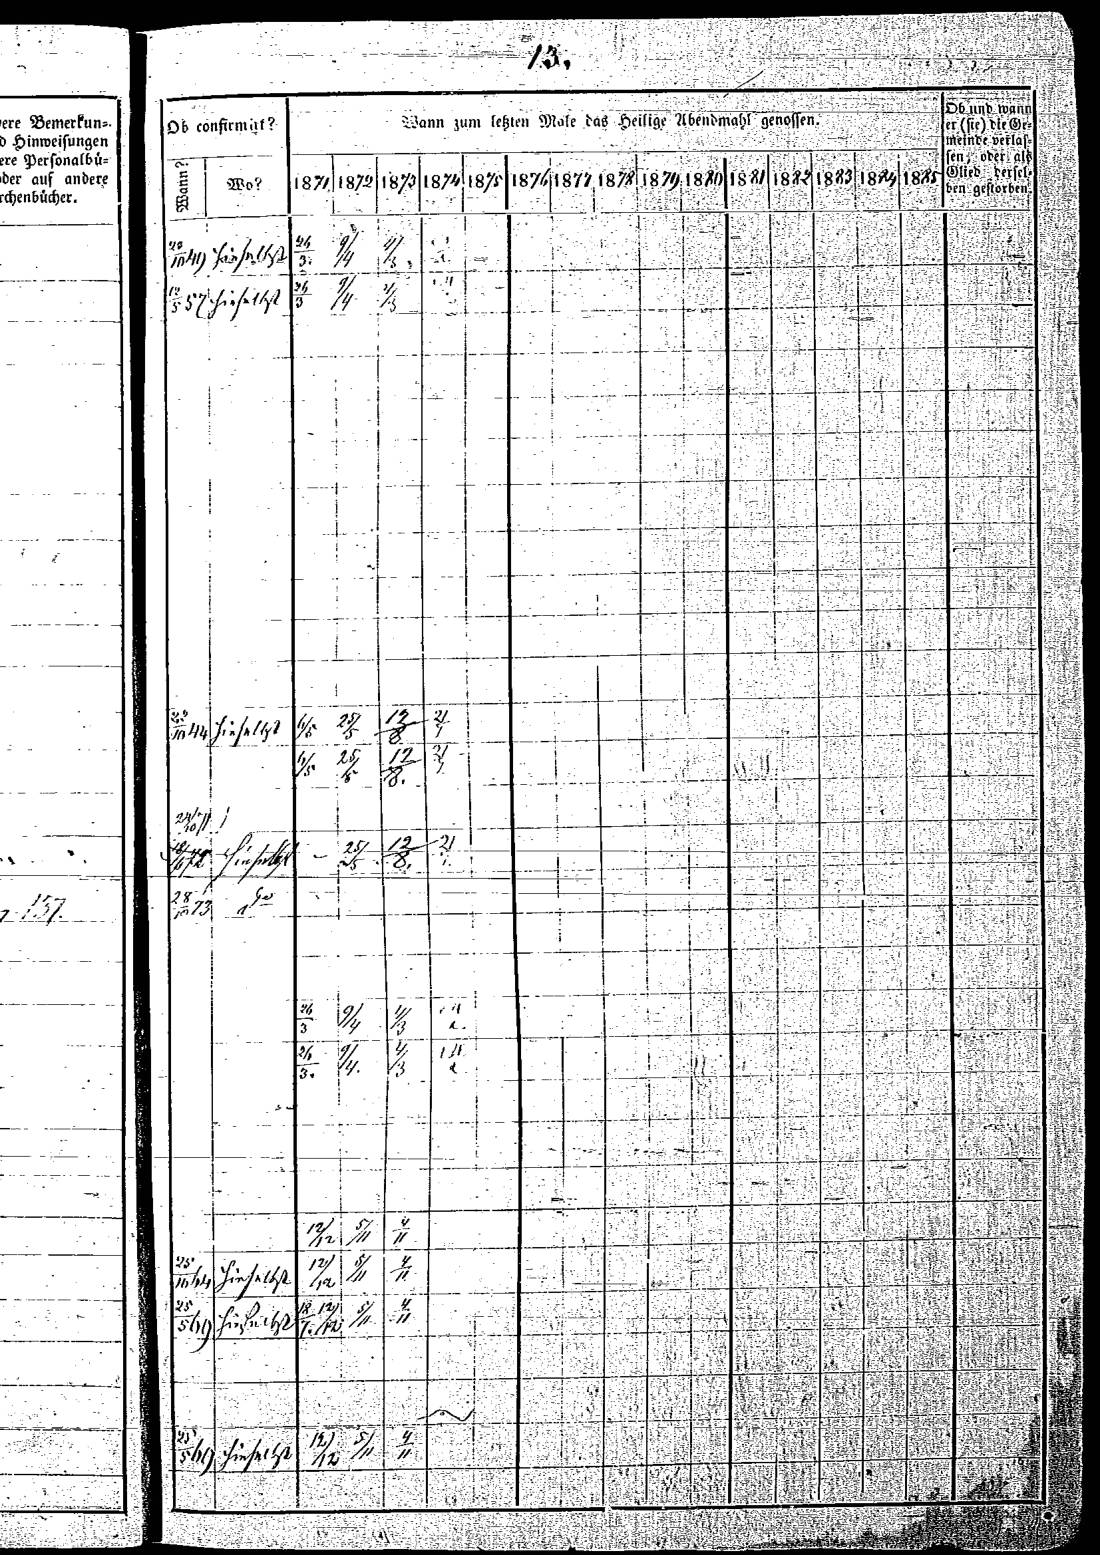 13.
vere Bemerkun-
d Hinweisungen
ere Personalbü-
oder auf andere
rchenbücher.
Ob confirmirt?
Wann zum letzten Male das Heilige Abendmahl genossen.
Ob und wann
er (sie) die Ge-
meinde verlas-
sen, oder als
Glied dersel-
ben gestorben.
Wann?
Wo?
1871 1872 1873 1874 1875 1876 1877 1878 1879 1880 1881 1882 1883 1884 1885
20/10 49 hieselbst 26/3. 9/4 4/3.
12/5 57 hieselbst 26/3 9/4 4/3
22/10 44 hieselbst 6/5 25/5 12/8 21/7
6/5 25/5 12/8. 21/7
24/10 71
72 hieselbst - 25/5 12/8. 21
28/10 73 do
137.
26/3 9/4 4/3
26/3. 9/4. 4/3
12/12 5/11 4/11
25/10 64 hieselbst 12/12 5/11 4/11
25/5 69 hieselbst 18/7. 12/12 5/11 4/11
25/5 69 hieselbst 12/12 5/11 4/11